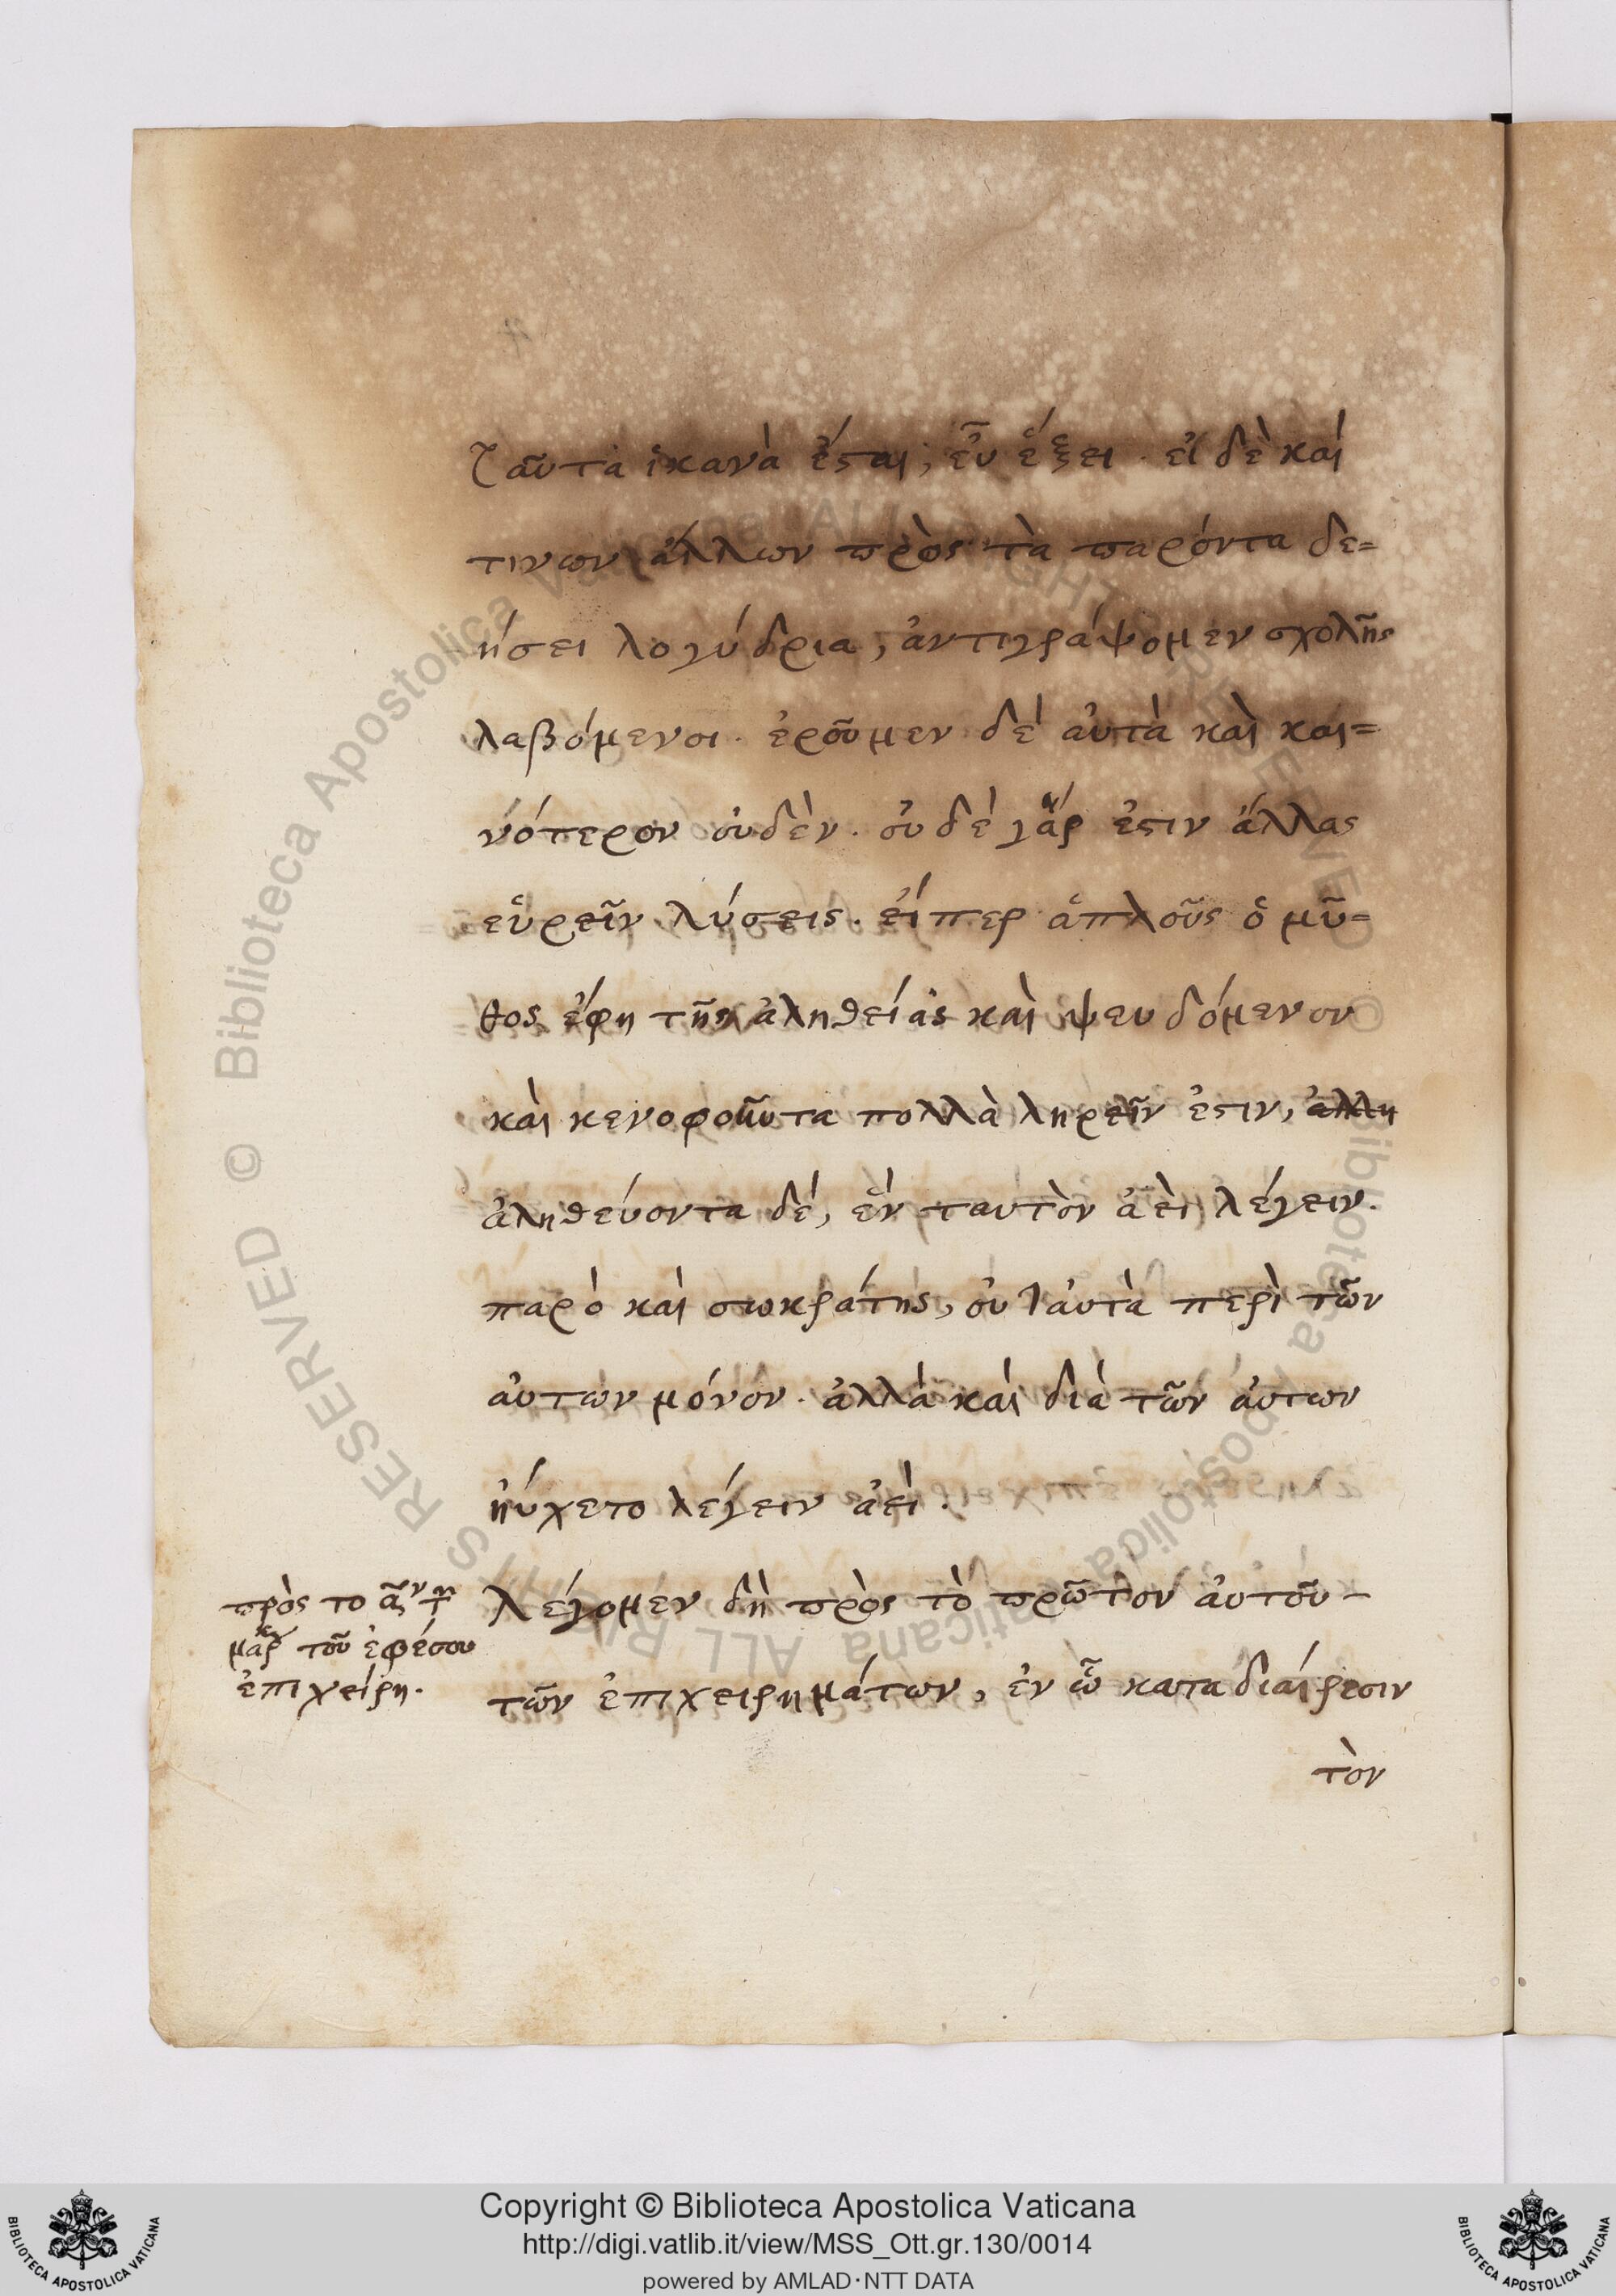 ταῦτα ἱκανὰ ἔσται, εὖ ἕξει · εἰ δὲ καὶ
τινων ἄλλων πρὸς τὰ παρόντα δε=
ήσει λογύδρια, ἀντιγράψομεν σχολῆς
λαβόμενοι · ἐροῦμεν δέ αὐτὰ καὶ και=
νότερον οὐδὲν · οὐδέ γὰρ ἐστιν ἄλλας
εὑρεῖν λύσεις · εἴπερ ἁπλοῦς ὁ μῦ=
θος ἔφη τῆς ἀληθείας καὶ ψευδόμενον
καὶ κενοφοῦντα πολλὰ ληρεῖν ἐστιν,
ἀληθεύοντα δέ, ἓν ταυτὸν ἀεὶ λέγειν.
παρὸ καὶ σωκράτης, οὐ ταὐτὰ περὶ τῶν
αὐτῶν μόνον · ἀλλὰ καὶ διὰ τῶν αὐτων
ηὔχετο λέγειν ἀεὶ ·
πρὸς το ᾱον τοῦ
μάρ τοῦ ἐφέσου
ἐπιχείρη.
Λέγομεν δὴ πρὸς τὸ πρῶτον αὐτοῦ –
τῶν ἐπιχειρημάτων, ἐν ὧ κατα διαίρεσιν
τὸν
© Biblioteca Apostolica Vaticana ALL RIGHTS RESERVED
© Biblioteca Apostolica Vaticana ALL RIGHTS RESERVED
Copyright © Biblioteca Apostolica Vaticana
http://digi.vatlib.it/view/MSS_Ott.gr.130/0014
powered by AMLAD·NTT DATA
BIBLIOTECA APOSTOLICA VATICANA
BIBLIOTECA APOSTOLICA VATICANA